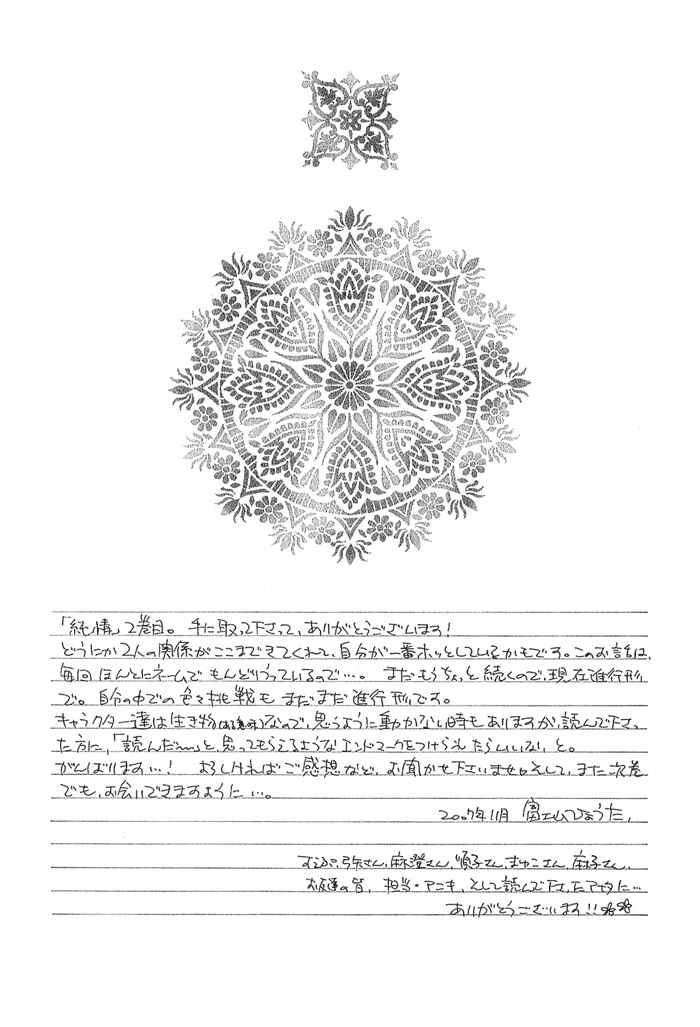 「純情」2巻目。手に取って下さって、ありがとうございます!
どうにか2人の関係がここまできてくれて、自分が一番ホッとしているかもです。このお話は、
毎回ほんとにネームでもんどりうっているので…。まだもうちょっと続くので、現在進行形
で。自分の中での色々挑戦もまだまだ進行形です。
キャラクター達は生き物(ある意味)なので、思うように動かない時もありますが、読んで下さっ
た方に、「読んだ〜」と、思ってもらえるようなエンドマークをつけられたらいいな、と。
がんばります…! よろしければご感想など、お聞かせ下さいませ。そして、また次巻
でも、お会いできますように…。
2007年11月 富士山ひょうた.
弥さん,麻澄さん,順子さん,まゆこさん,麻子さん.
お友達の皆, 担当・アニキ, そして読んで下さったアナタに…
ありがとうございます!!